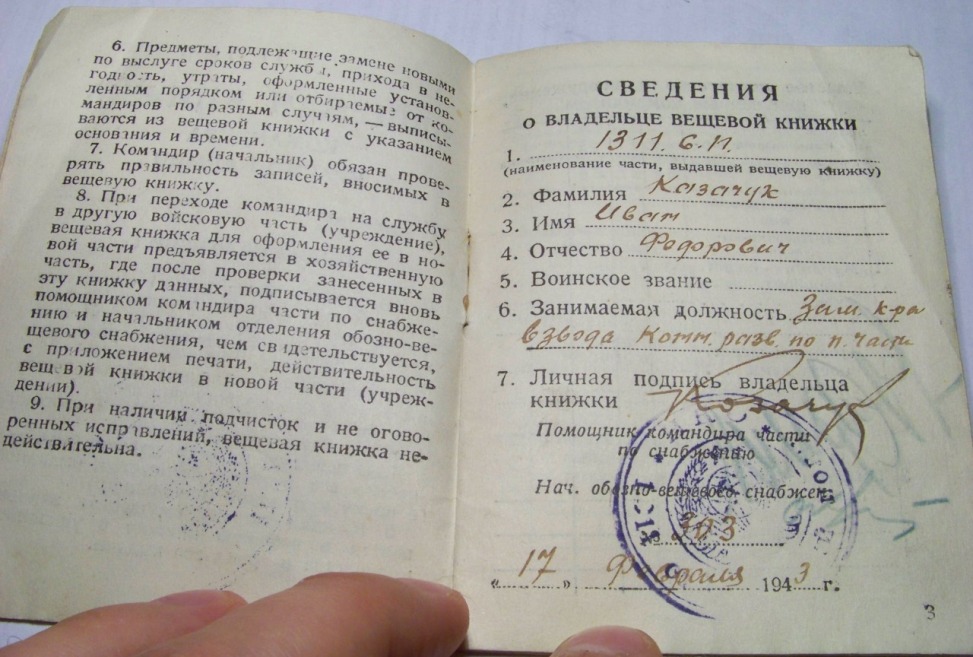 6. Предметы, подлежащие замене новыми
по выслуге сроков службы, прихода в не-
годность, утраты, оформленные установ-
ленным порядком или отбираемые от ко-
мандиров по разным случаям, — выписы-
ваются из вещевой книжки с указанием
основания и времени.
7. Командир (начальник) обязан прове-
рять правильность записей, вносимых в
вещевую книжку.
8. При переходе командира на службу
в другую войсковую часть (учреждение),
вещевая книжка для оформления ее в но-
вой части предъявляется в хозяйственную
часть, где после проверки занесенных в
эту книжку данных, подписывается вновь
помощником командира части по снабже-
нию и начальником отделения обозно-ве-
щевого снабжения, чем свидетельствуется,
с приложением печати, действительность
вещевой книжки в новой части (учреж-
дении).
9. При наличии подчисток и не огово-
ренных исправлений, вещевая книжка не-
действительна.
СВЕДЕНИЯ
О ВЛАДЕЛЬЦЕ ВЕЩЕВОЙ КНИЖКИ
1. 1311. С.П.
(наименование части, выдавшей вещевую книжку)
2. Фамилия Казачук
3. Имя Иван
4. Отчество Федорович
5. Воинское звание
6. Занимаемая должность Зам. к-ра
взвода разв. по п. части
7. Личная подпись владельца
книжки Козачук
Помощник командира части
по снабжению
Нач. обозно-вещевого снабжен.
„17" Февраля 1943 г.
3